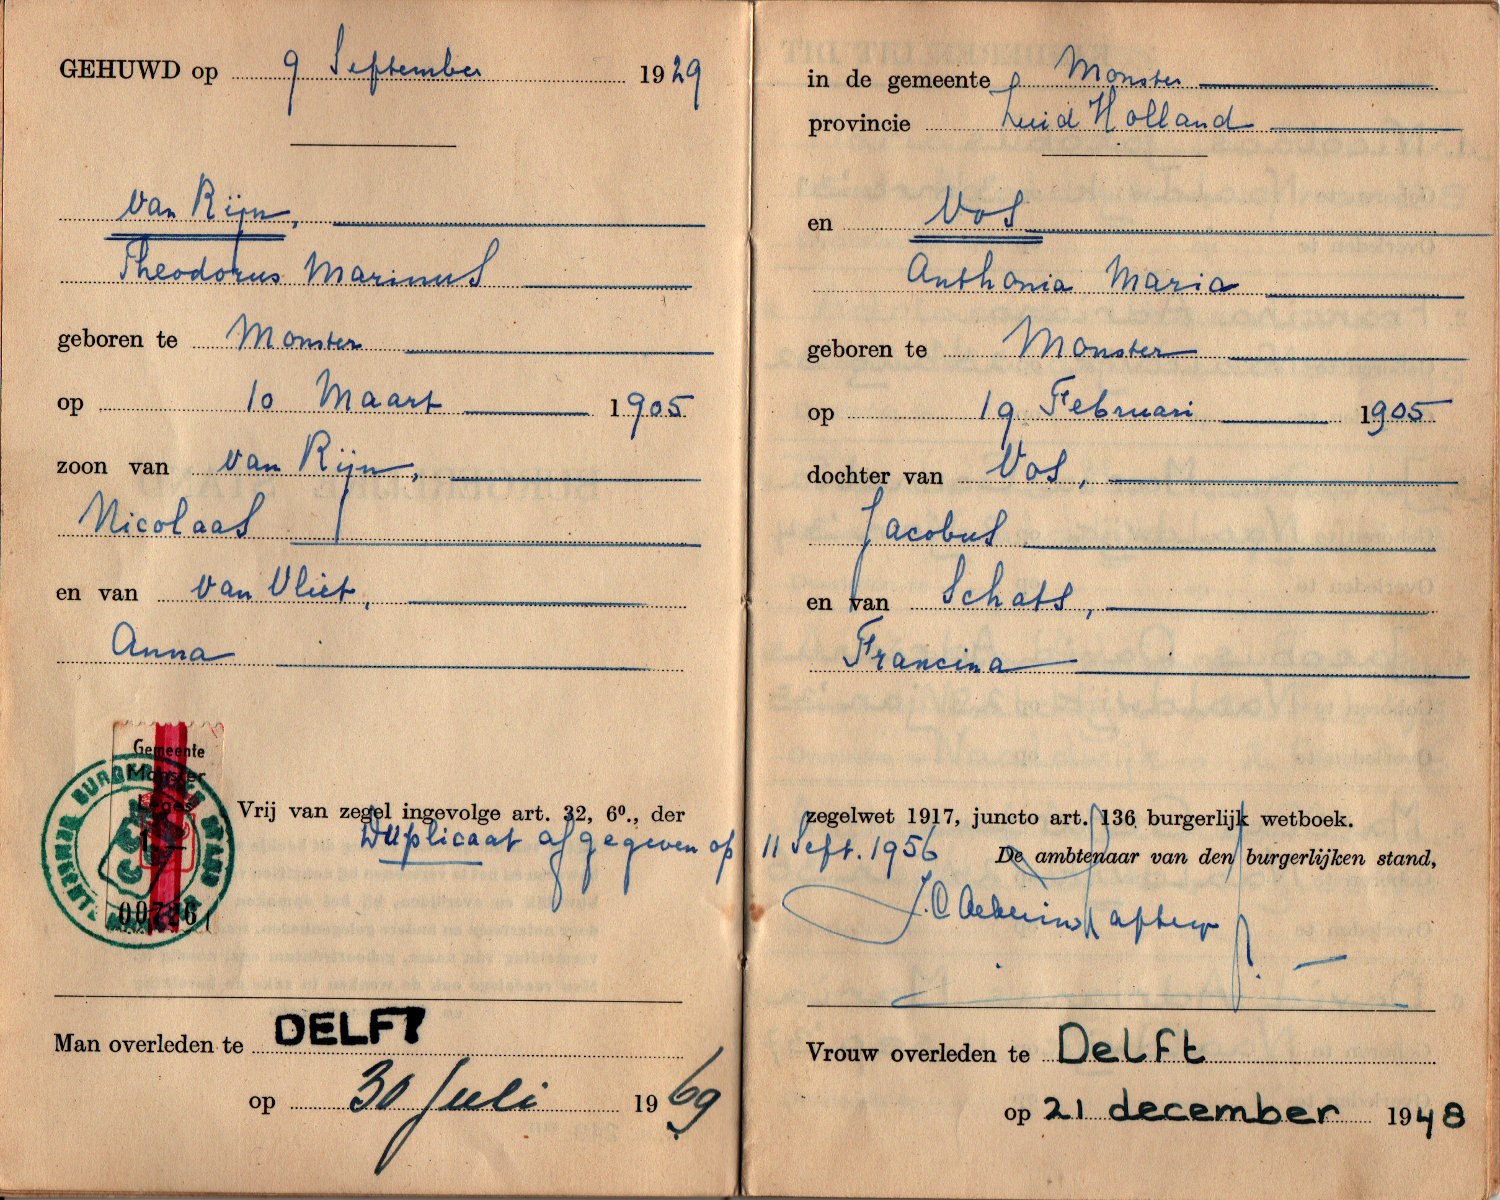 GEHUWD op 9 September 1929
van Rijn,
Theodorus Marinus
geboren te Monster
op 10 Maart 1905
zoon van van Rijn,
Nicolaas
en van van Vliet,
Anna
Gemeente
Monster
Leges
BURGERLIJKE STAND
GEMEENTE MONSTER
00726
Vrij van zegel ingevolge art. 32, 6º., der
Duplicaat afgegeven op
Man overleden te DELFT
op 30 Juli 1969
in de gemeente Monster
provincie Zuid Holland
en Vos
Anthonia Maria
geboren te Monster
op 19 Februari 1905
dochter van Vos,
Jacobus
en van Schats,
Francina
zegelwet 1917, juncto art. 136 burgerlijk wetboek.
11 Sept. 1956
De ambtenaar van den burgerlijken stand,
Vrouw overleden te Delft
op 21 december 1948